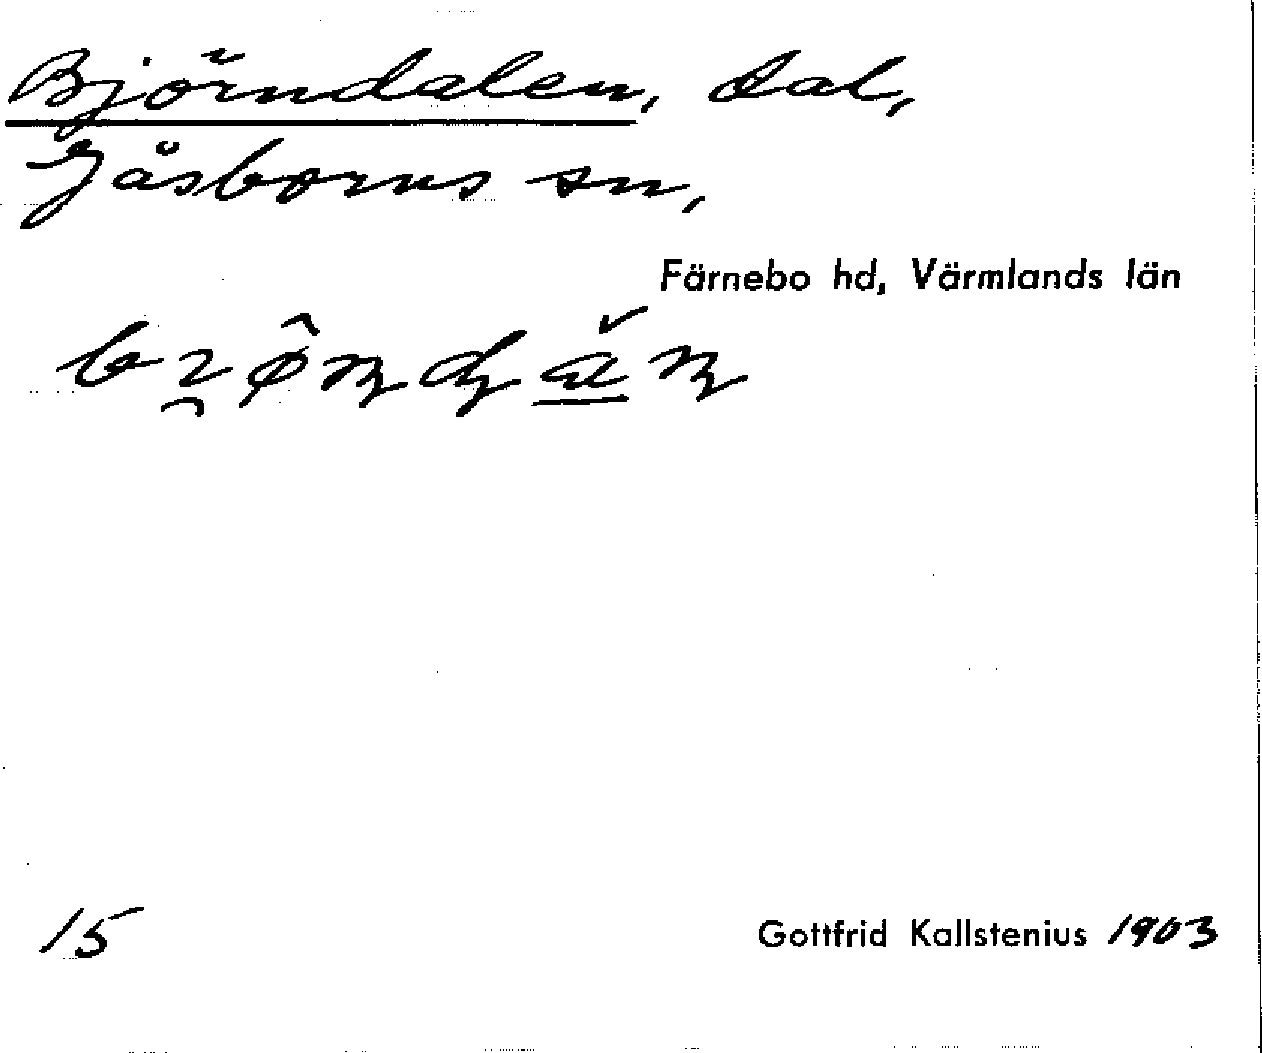 Björndalen, dal,
Gåsborns sn,
Färnebo hd, Värmlands län
15
Gottfrid Kallstenius 1903